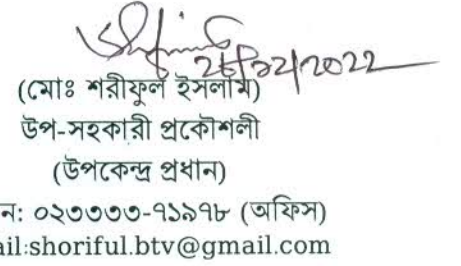 26/12/2022
(মোঃ শরীফুল ইসলাম)
উপ-সহকারী প্রকৌশলী
(উপকেন্দ্র প্রধান)
ন: ০২৩৩৩৩-৭১৯৭৮ (অফিস)
ail:shoriful.btv@gmail.com